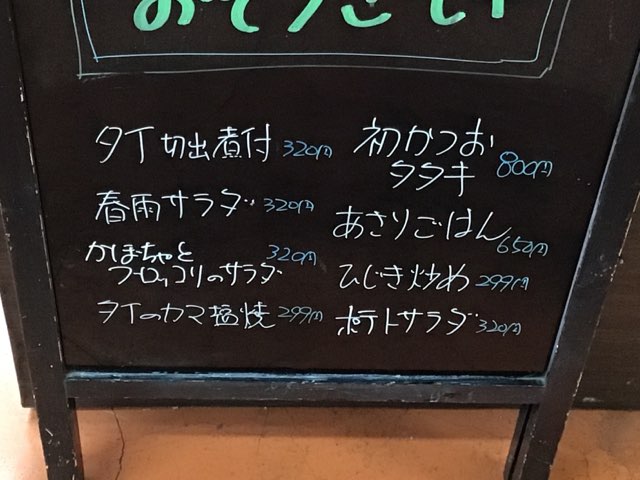 おそうざい
タイ切出煮付 320円
春雨サラダ 320円
かぼちゃと
ブロッコリのサラダ 320円
タイのカマ塩焼 299円
初かつお
タタキ 800円
あさりごはん 650円
ひじき炒め 299円
ポテトサラダ 320円